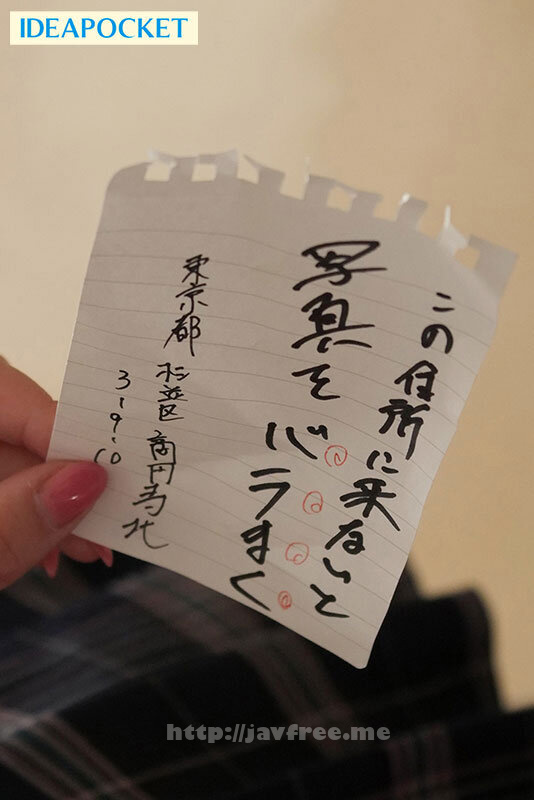 IDEAPOCKET
この住所に来ないと
写真を
バラまく
東京都
杉並区 高円寺北
3-9-10
http://javfree.me